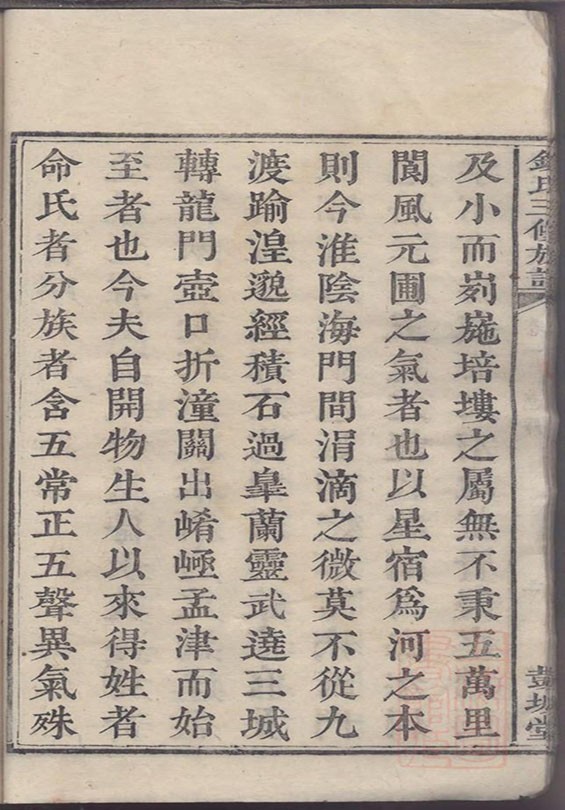 及小而峛崺培塿之屬無不秉五萬里
閬風元圃之氣者也以星宿爲河之本
則今淮陰海門間涓滴之微莫不從九
渡踰湟邈經積石過臯蘭靈武遶三城
轉龍門壺口折潼關出崤𡸣孟津而始
至者也今夫自開物生人以來得姓者
命氏者分族者含五常正五聲異氣殊
氏三修族譜
彭城堂